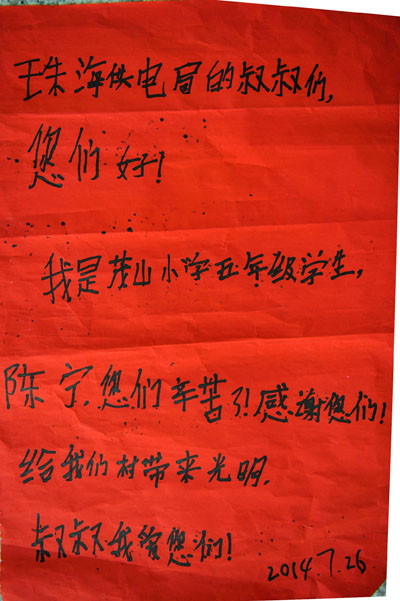 珠海供电局的叔叔们,
您们好!
我是茂山小学五年级学生,
陈宁.您们辛苦了!感谢您们!
给我们村带来光明.
叔叔我爱您们!
2014.7.26